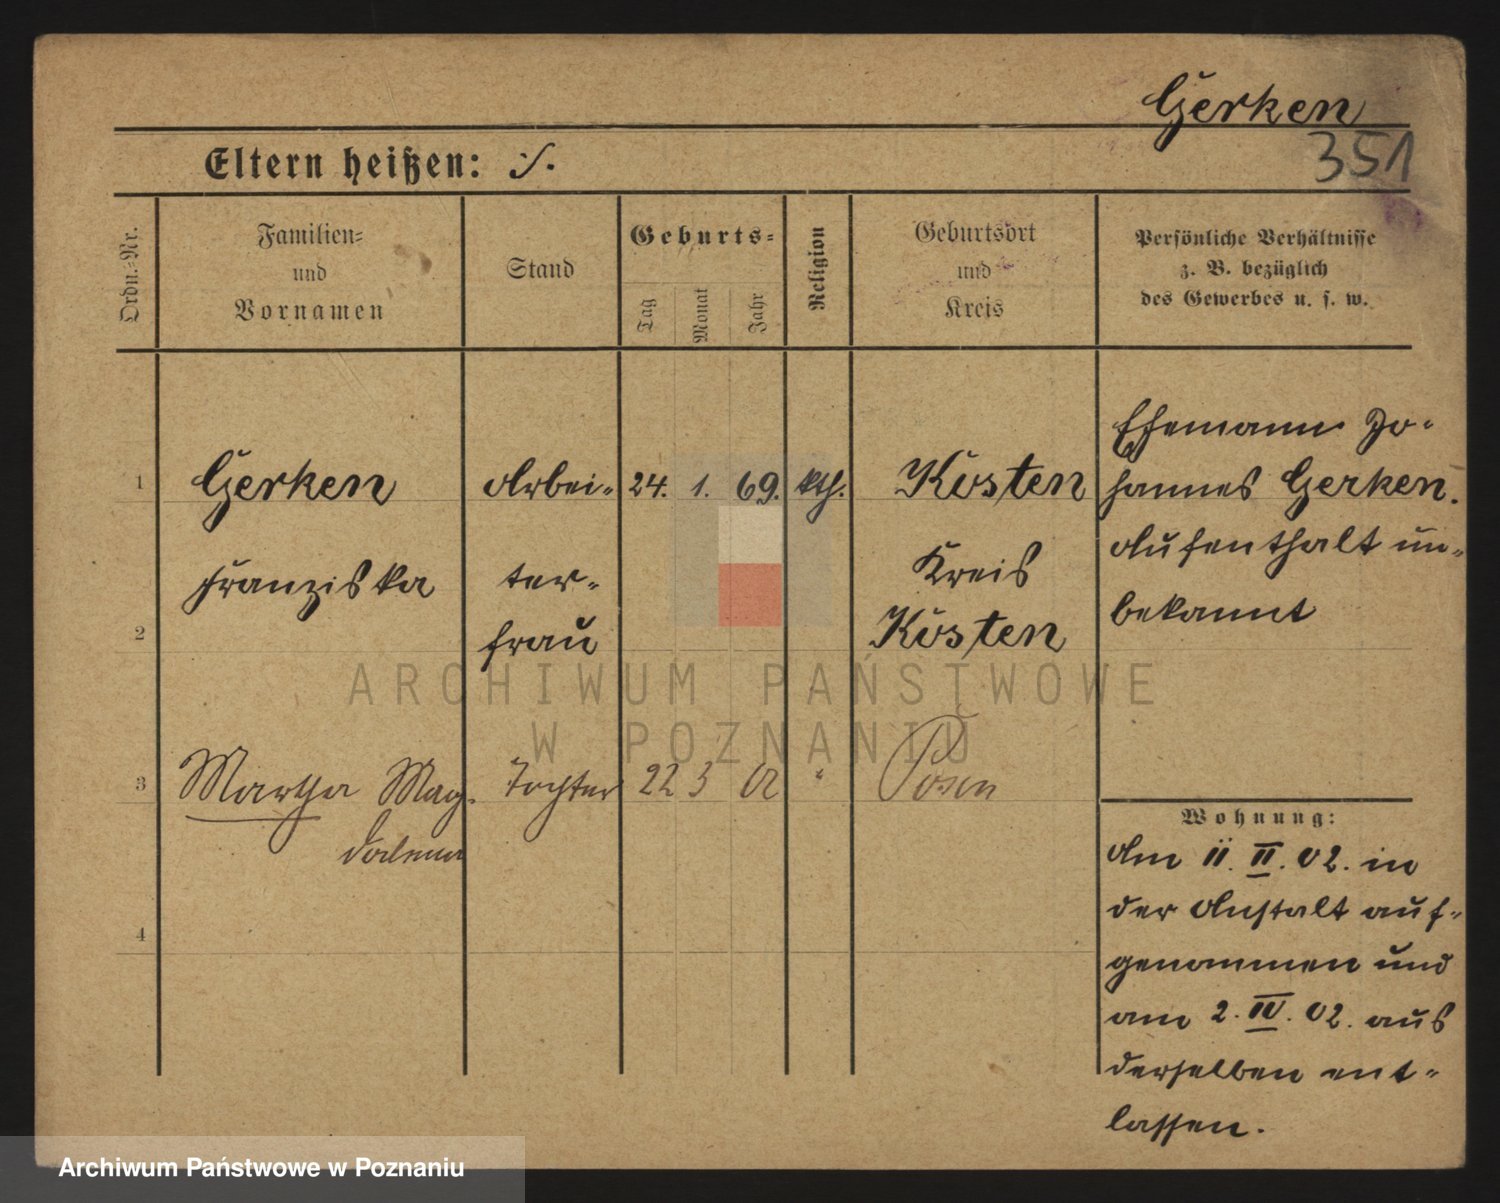 Gerken
351
Eltern heißen: ./.
Ordn.-Nr.
Familien-
und
Vornamen
Stand
Geburts-
Tag
Monat
Jahr
Religion
Geburtsort
und
Kreis
Persönliche Verhältnisse
z. B. bezüglich
des Gewerbes u. s. w.
1 Gerken Arbei- 24. 1. 69. kth. Kosten
Franziska ter- Kreis
2 frau Kosten
Ehemann Jo-
hannes Gerken.
Aufenthalt un-
bekannt
3 Martha Mag- Tochter 22 3 02 " Posen
dalena
4
Wohnung:
Am 11. II. 02. in
der Anstalt auf-
genommen und
am 2. IV. 02. aus
derselben ent-
lassen.
ARCHIWUM PAŃSTWOWE
W POZNANIU
Archiwum Państwowe w Poznaniu